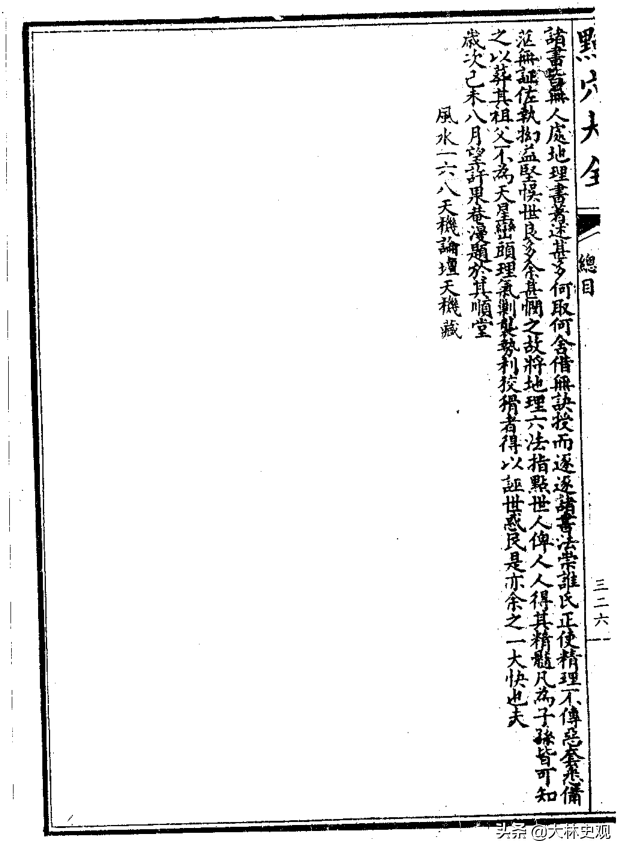 點穴大全
總目
三二六
諸書皆無人處地理書著述甚多何取何舍借無訣授而逐逐諸書法崇誰氏正使精理不傳惡套悉備
茫無証佐執拗益堅悞世良多余甚憫之故將地理六法指點世人俾人人得其精髓凡為子孫皆可知
之以葬其祖父不為天星巒頭理氣剿襲勢利狡猾者得以誣世惑民是亦余之一大快也夫
歲次己未八月望許果巷漫題於其順堂
風水一六八天機論壇天機藏
头条 @大林史观